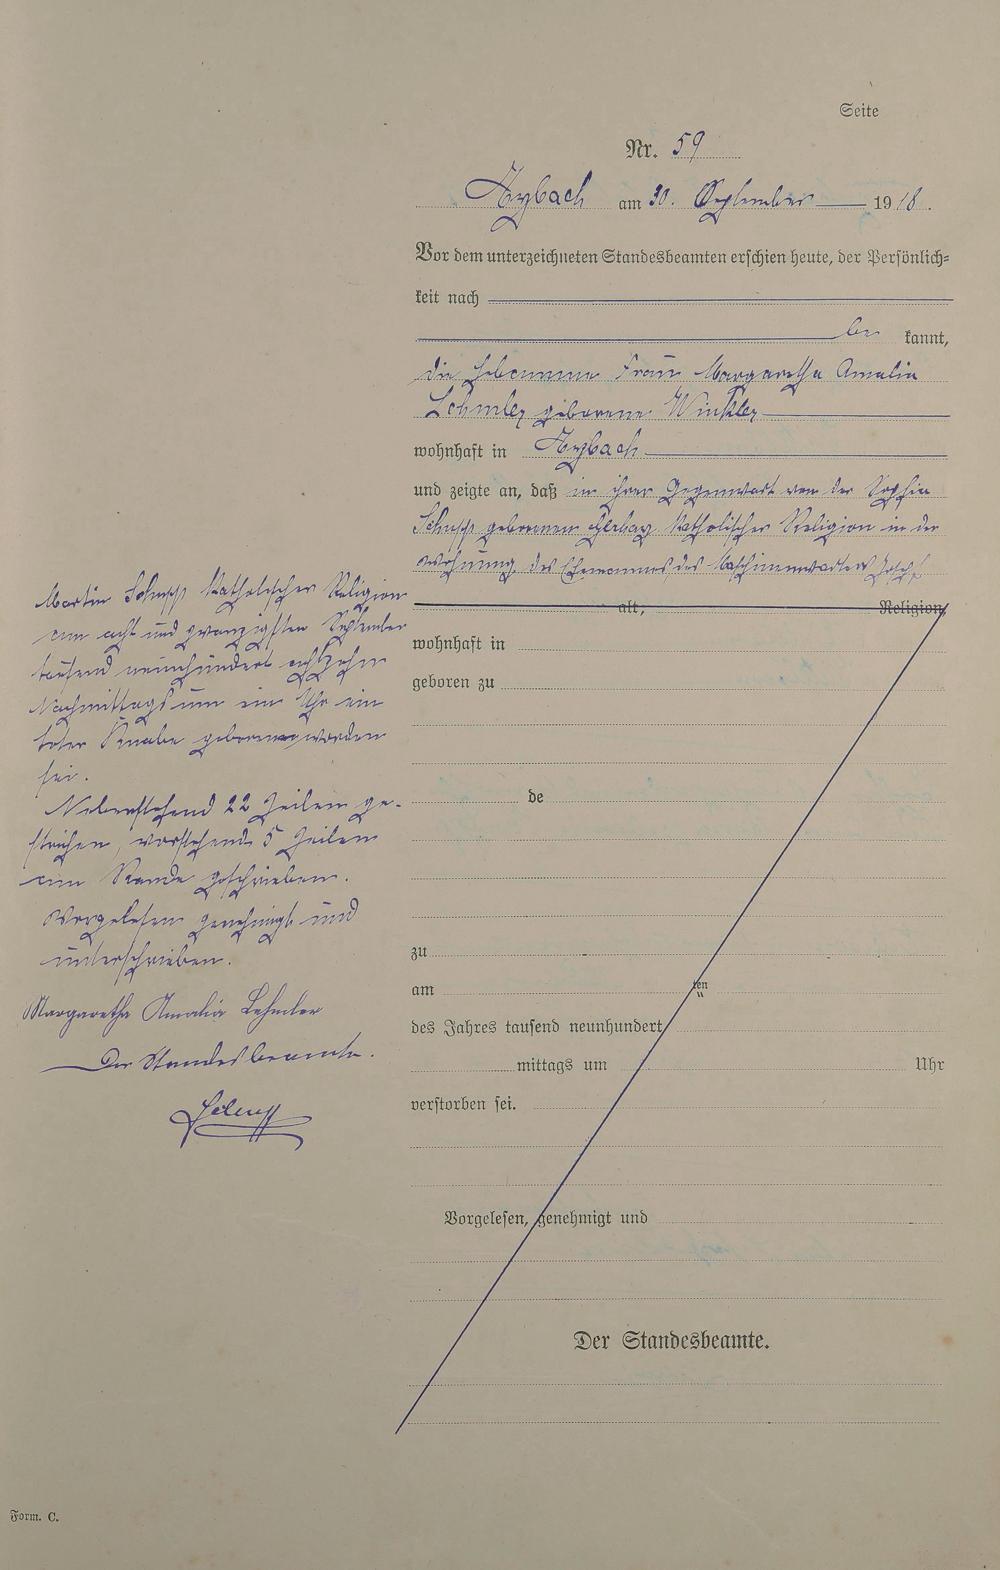 Seite
Nr. 59
Aybach am 30. September 1918.
Vor dem unterzeichneten Standesbeamten erschien heute, der Persönlich=
keit nach
be kannt,
die Hebamme Frau Margaretha Amalia
Lehmler geborene Winkler
wohnhaft in Aybach
und zeigte an, daß in ihrer Gegenwart von der Sophia
Schupp geborenen katholischer Religion in der
Wohnung des Ehemannes, des Maschinenwärters Josef
alt, Religion,
Martin Schupp katholischer Religion
am acht und zwanzigsten September
tausend neunhundert achtzehn
Nachmittags um ein Uhr ein
toter Knabe geboren worden
sei.
Nebenstehend 22 Zeilen ge-
strichen, vorstehend 5 Zeilen
am Rande geschrieben.
Vorgelesen genehmigt und
unterschrieben.
Margaretha Amalia Lehmler
Der Standesbeamte.
wohnhaft in
geboren zu
de
zu
am ten
des Jahres tausend neunhundert
mittags um Uhr
verstorben sei.
Vorgelesen, genehmigt und
Der Standesbeamte.
Form. C.